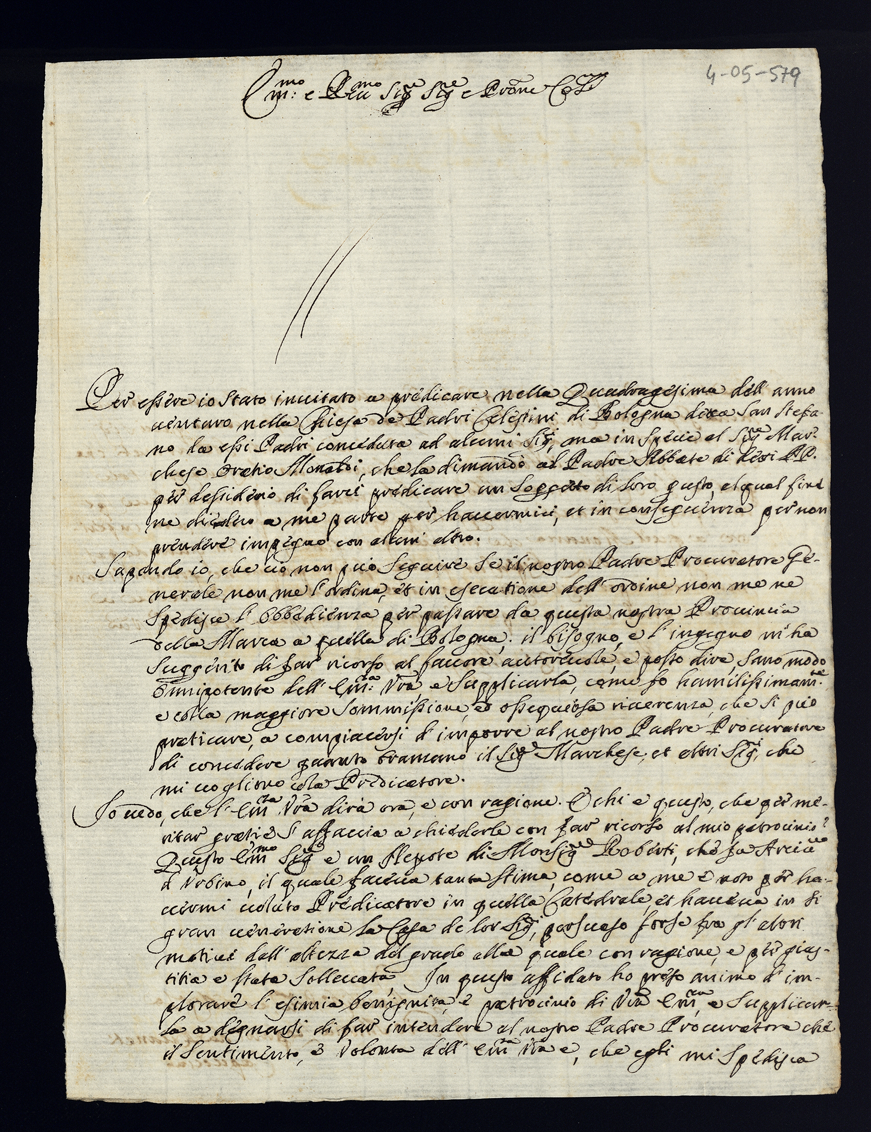 4-05-579
Em̃:mo e Reu:mo Sig:re Sig:re e Prõne
Per essere io stato inuitato a predicare nella Quadragesima dell'anno
uenturo nella Chiesa de Padri Celestini di Bologna detta San Stefa-
no da essi Padri conceduta ad alcuni Sig:ri, ma in specie al Sig:re Mar-
chese Oratio, che la dimandò al Padre Abbate di detti PP.
per desiderio di farci predicare un soggetto di loro gusto, al qual fine
ne diedero a me parte per hauermici, et in conseguenza per non
prendere impegno con altri.
Sapendo io, che ciò non può seguire se il nostro Padre Procuratore Ge-
nerale non me l'ordina, et in esecutione dell'ordine non me ne
spedisce l'Obbedienza per passare da questa nostra Prouincia
della Marca a quella di Bologna: il bisogno, e l'ingegno m'ha
suggerito di far ricorso al fauore autoreuole, e posso dire
onnipotente dell'Em̃:za Vrã e supplicarla, come fò humilissimam:te
e colla maggiore sommissione, ed ossequiosa riuerenza, che si può
praticare, a compiacersi d'imporre al nostro Padre Procuratore
di concedere quanto bramano il Sig:re Marchese, et altri Sig:ri, che
mi uogliono colà Predicatore.
Io uedo, che l'Em̃:za Vrã dirà ora, e con ragione. O chi è questo, che per me-
ritar gratie s'affaccia a chiederle con far ricorso al mio patrocinio?
Questo Em̃:mo Sig:re è un Nepote di Monsig:re Roberti, che fù
d'Urbino, il quale faceua tanta stima, come a me è noto per ha-
uermi uoluto Predicatore in quella Catedrale, et haueua in sì
gran ueneratione la Casa de lor Sig:ri, forse fra gl'altri
motiui dall'altezza del grado alla quale con ragione, e per gius-
titia è stata solleuata. In questo affidato ho preso animo d'im-
plorare l'esimia benignità, e patrocinio di Vrã Em̃:za, e supplicar-
la a degnarsi di far intendere al nostro Padre Procuratore che
il sentimento, e Volontà dell'Em̃:za Vrã è, che egli mi spedisca